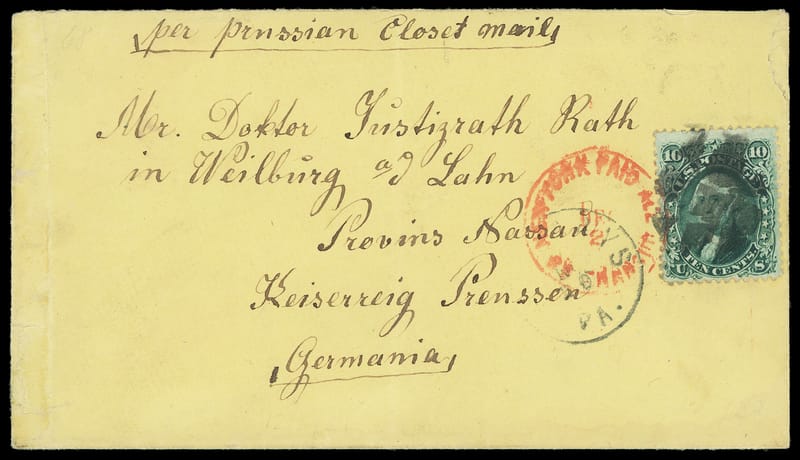 per prussian Closet mail
Mr. Doktor Justizrath Rath
in Weilburg a/d Lahn
Provins Nassau
Keiserreig Prenssen
Germania
NEW YORK PAID ALL
BR. TRANSIT
PA.
10 U.S. POSTAGE 10
U TEN CENTS S